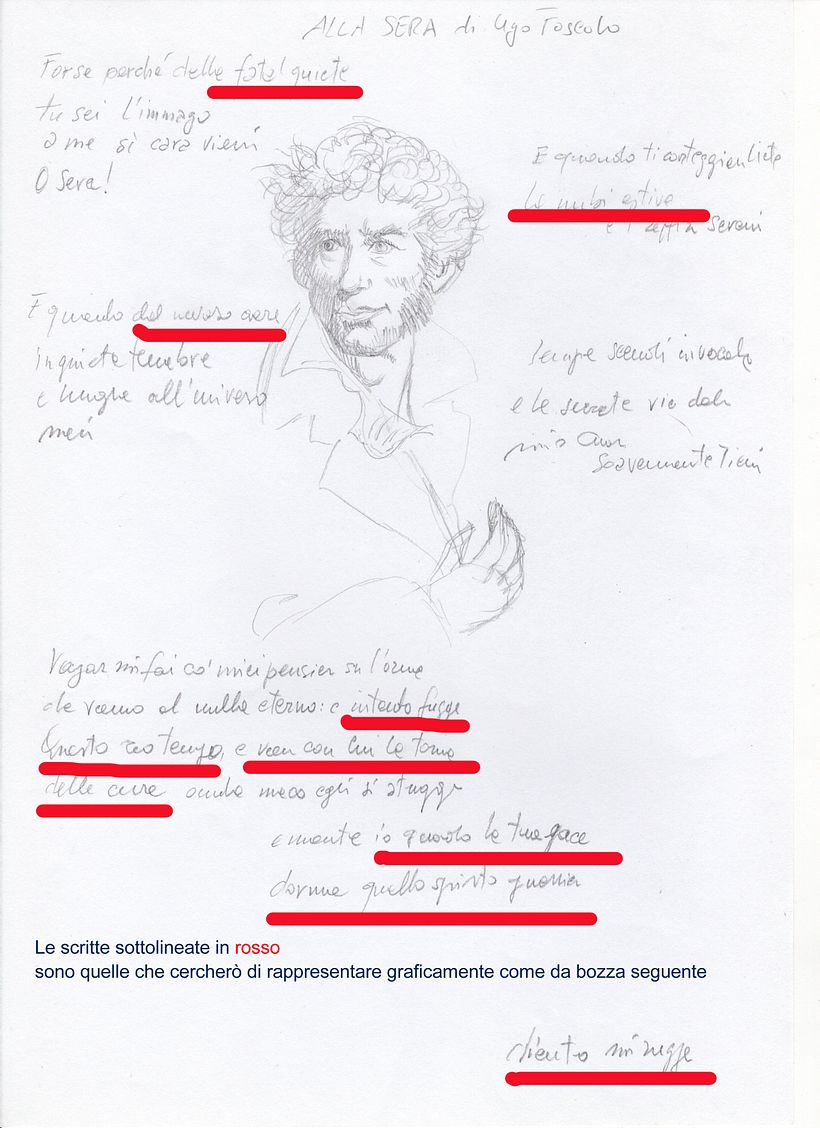 ALLA SERA di Ugo Foscolo
Forse perché della fatal quiete
tu sei l'immago
a me sì cara vieni
O Sera!
E quando ti corteggian liete
le nubi estive
e i zeffiri sereni
E quando dal nevoso aere
inquiete tenebre
e lunghe all'universo
meni
Sempre scendi invocata
e le secrete vie del
mio cuor
soavemente tieni
Vagar mi fai co' miei pensier su l'orme
che vanno al nulla eterno: e intanto fugge
Questo reo tempo, e van con lui le torme
delle cure onde meco egli si strugge
e mentre io guardo la tua pace
dorme quello spirto guerrier
Le scritte sottolineate in rosso
sono quelle che cercherò di rappresentare graficamente come da bozza seguente